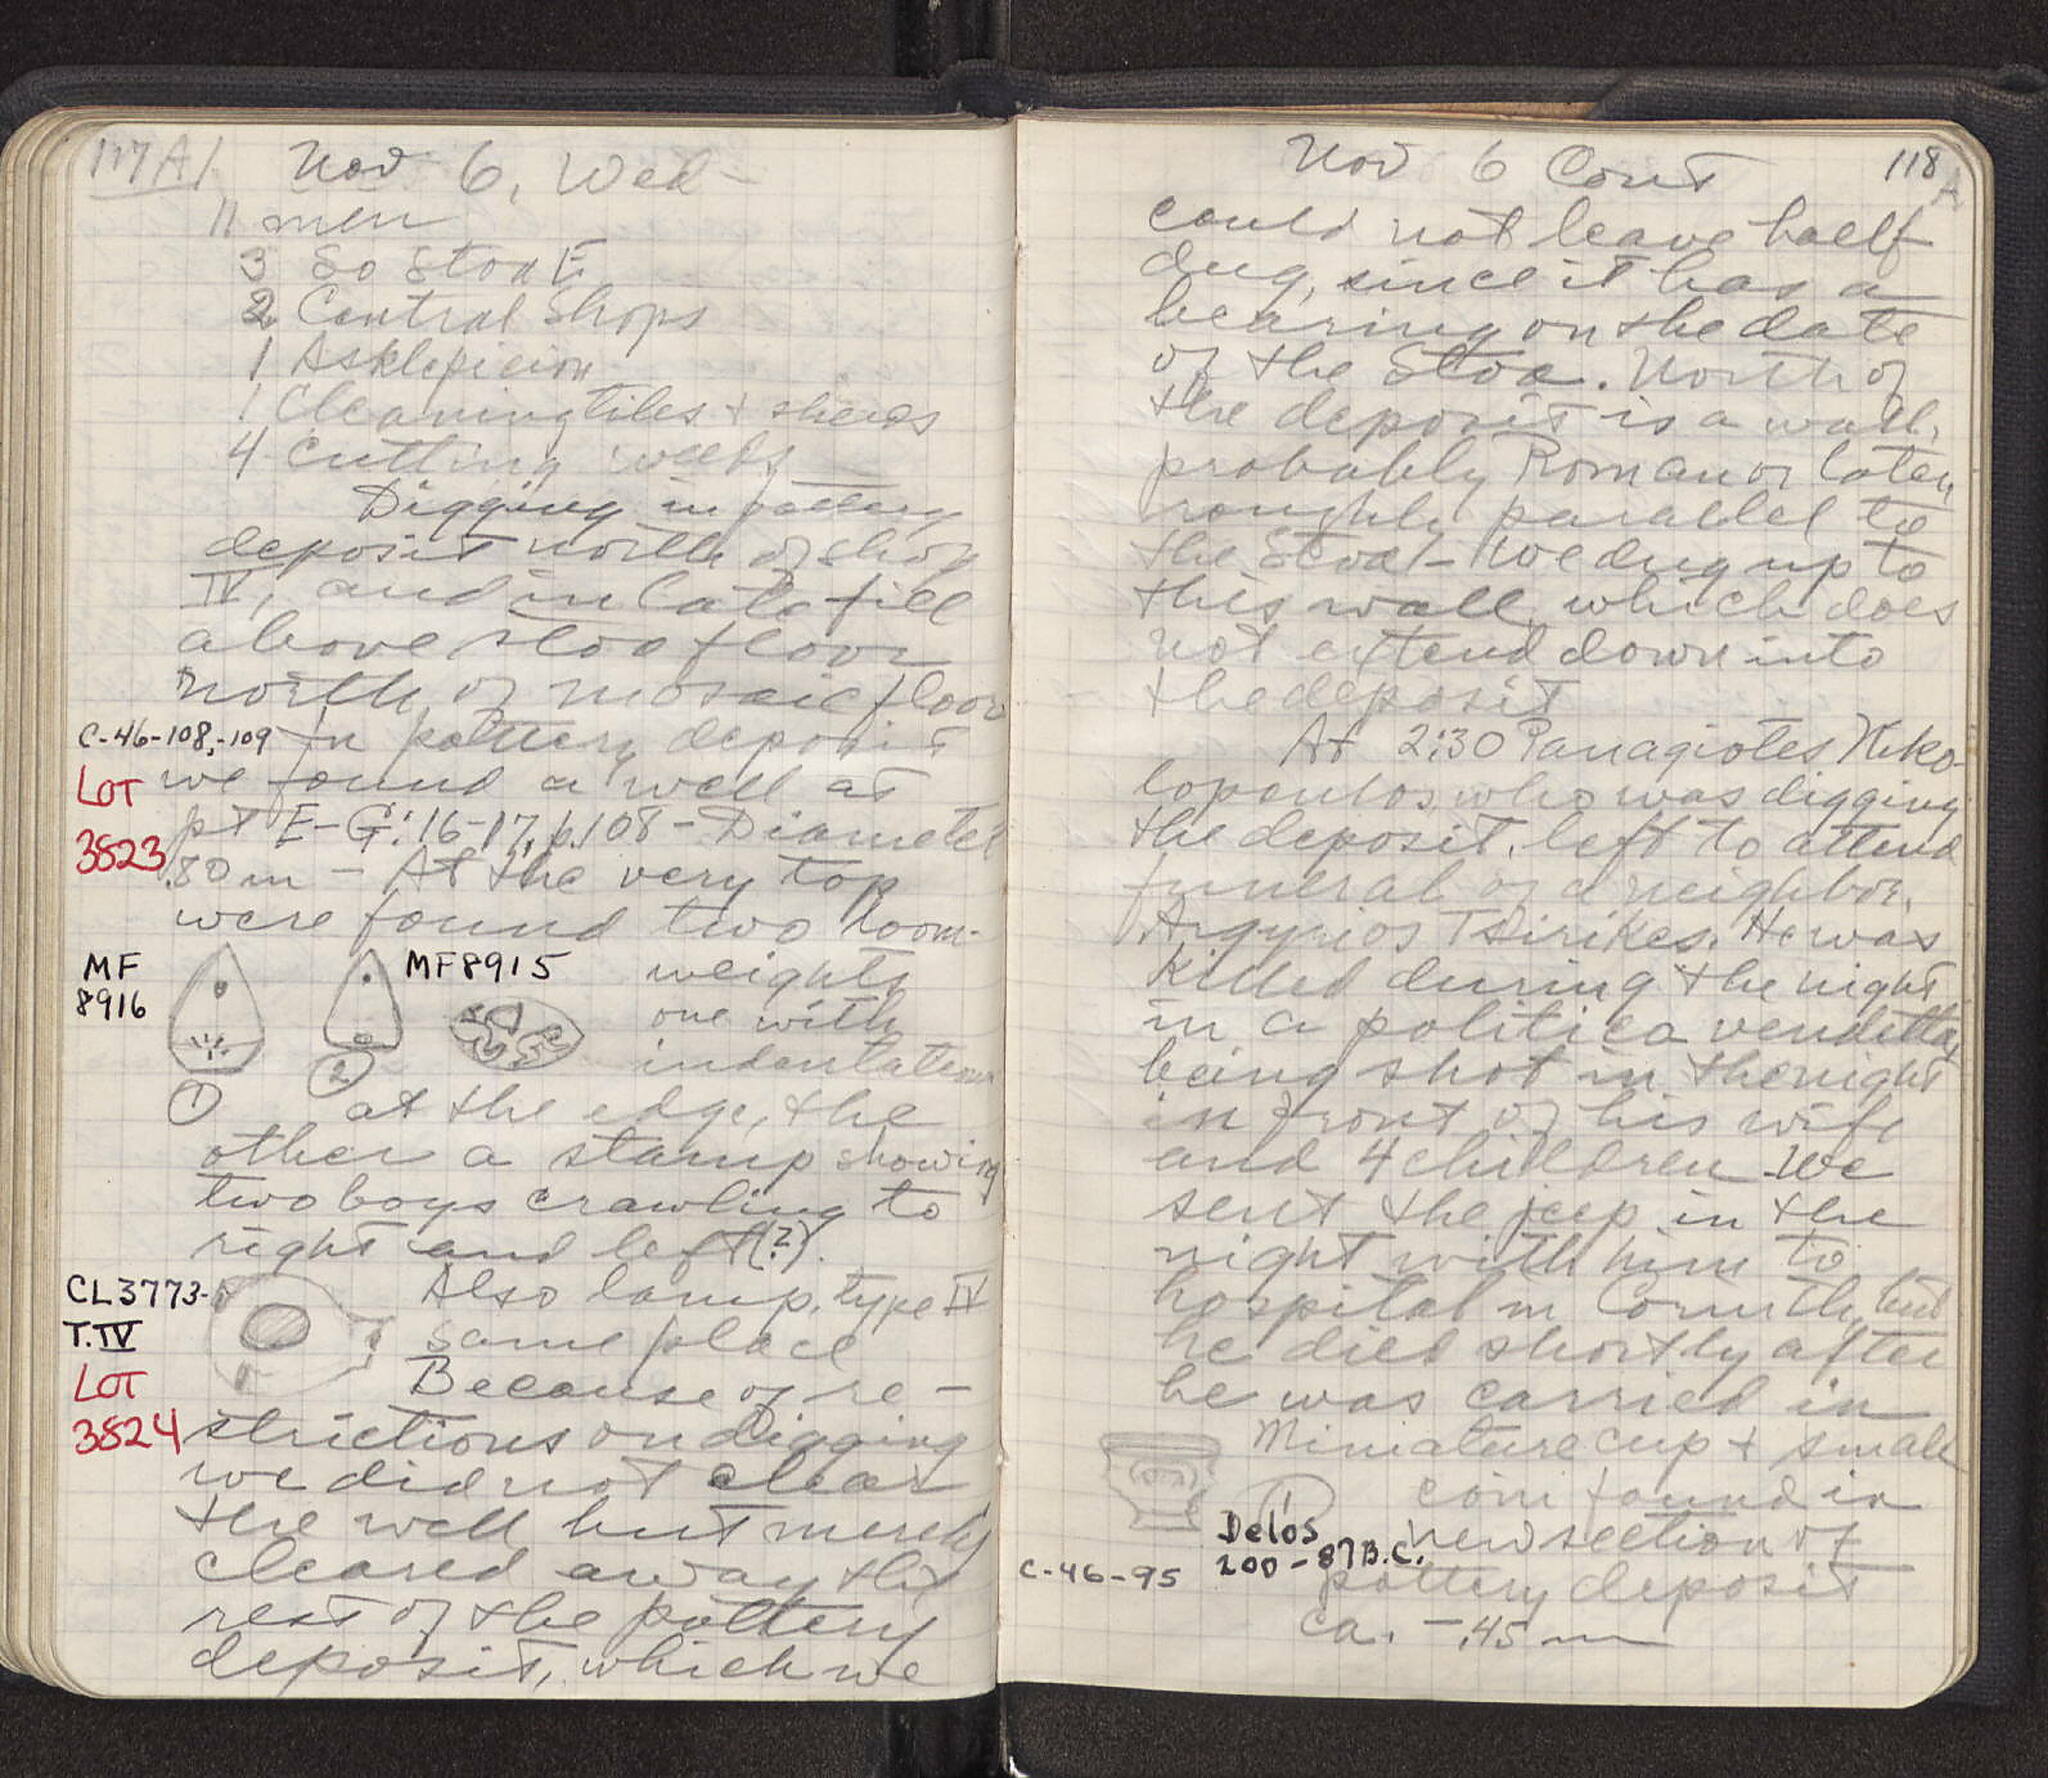 117 A
Nov 6, Wed-
11 men
3 So Stoa E
2 Central Shops
1 Asklepieion
1 Cleaning tiles + sherds
4 cutting weeds
Digging in pottery
deposit north of shop
IV, and in late fill
above stoa floor
north of mosaic floor
C-46-108,-109
In pottery deposit
LOT
3823
we found a well at
pt E-G:16-17, p.108 - Diameter
.80 m - At the very top
were found two loom-
MF
8916
MF8915
weights
one with
indentations
① ②
at the edge, the
other a stamp showing
two boys crawling to
right and left(?).
CL3773-
T.IV
Also lamp, type IV
same place
LOT
3824
Because of re-
strictions on digging
we did not clear
the well but merely
cleared away the
rest of the pottery
deposit, which we
Nov 6 Cont
118
A
could not leave half
dug, since it has a
bearing on the date
of the Stoa. North of
the deposit is a wall,
probably Roman or later,
roughly parallel to
the Stoa - We dug up to
this wall, which does
not extend down into
the deposit
At 2:30 Panagiotes Kiko-
lopoulos, who was digging
the deposit, left to attend
funeral of a neighbor,
Argyrios Tsirikes. He was
killed during the night
in a politica vendetta,
being shot in the night
in front of his wife
and 4 children We
sent the jeep in the
night with him to
hospital in Corinth, but
he died shortly after
he was carried in
Miniature cup + small
①
coin found in
Delos
200-87 B.C.
new section of
C-46-95
pottery deposit
ca. -.45 m